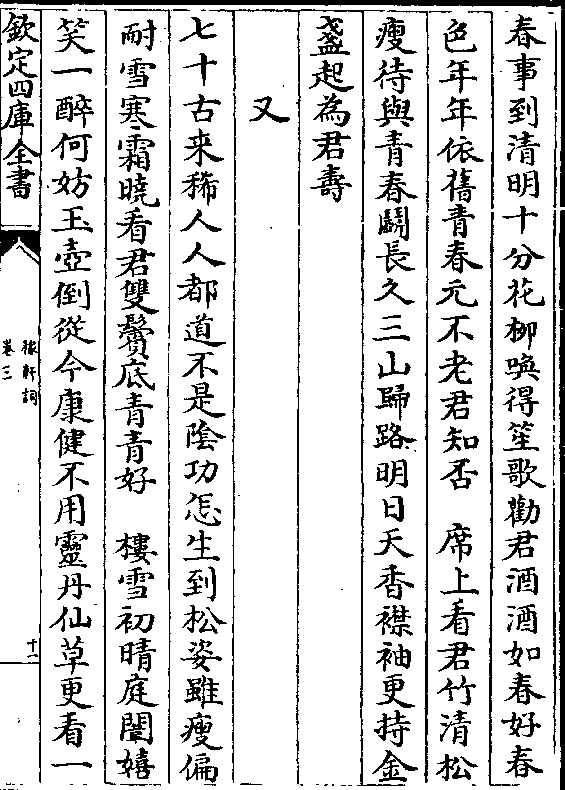 春事到清明十分花柳喚得笙歌勸君酒酒如春好春
色年年依舊青春元不老君知否　席上看君竹清松
瘦待與青春鬭長久三山歸路明日天香襟袖更持金
盞起為君壽
又
七十古来稀人人都道不是陰功怎生到松姿雖瘦偏
耐雪寒霜曉看君雙鬢底青青好　樓雪初晴庭闈嬉
笑一醉何妨玉壺倒從今康健不用靈丹仙草更看一
欽定四庫全書
稼軒詞
卷三
十一